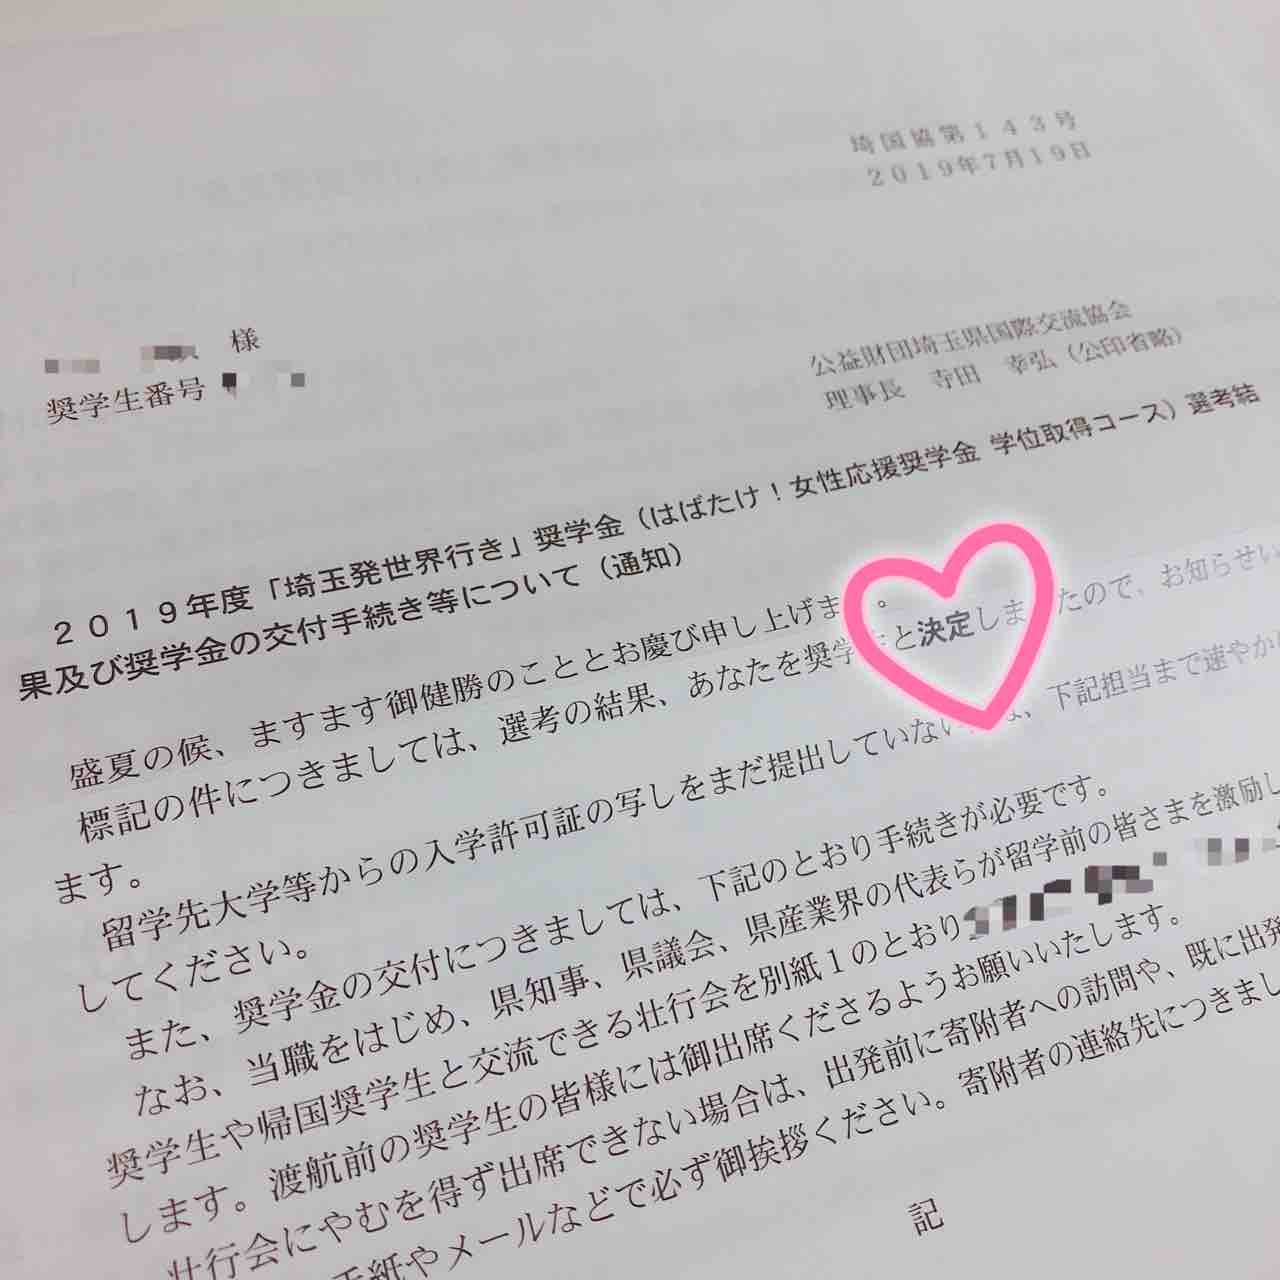 埼国協第１４３号
２０１９年７月１９日
様
奨学生番号
公益財団埼玉県国際交流協会
理事長　寺田　幸弘（公印省略）
２０１９年度「埼玉発世界行き」奨学金（はばたけ！女性応援奨学金 学位取得コース）選考結
果及び奨学金の交付手続き等について（通知）
盛夏の候、ますます御健勝のこととお慶び申し上げま。
標記の件につきましては、選考の結果、あなたを奨学と決定しましたので、お知らせい
ます。
留学先大学等からの入学許可証の写しをまだ提出していない、下記担当まで速やか
してください。
また、奨学金の交付につきましては、下記のとおり手続きが必要です。
なお、当職をはじめ、県知事、県議会、県産業界の代表らが留学前の皆さまを激励し
奨学生や帰国奨学生と交流できる壮行会を別紙１のとおり
します。渡航前の奨学生の皆様には御出席くださるようお願いいたします。
壮行会にやむを得ず出席できない場合は、出発前に寄附者への訪問や、既に出発
手紙やメールなどで必ず御挨拶ください。寄附者の連絡先につきまし
記